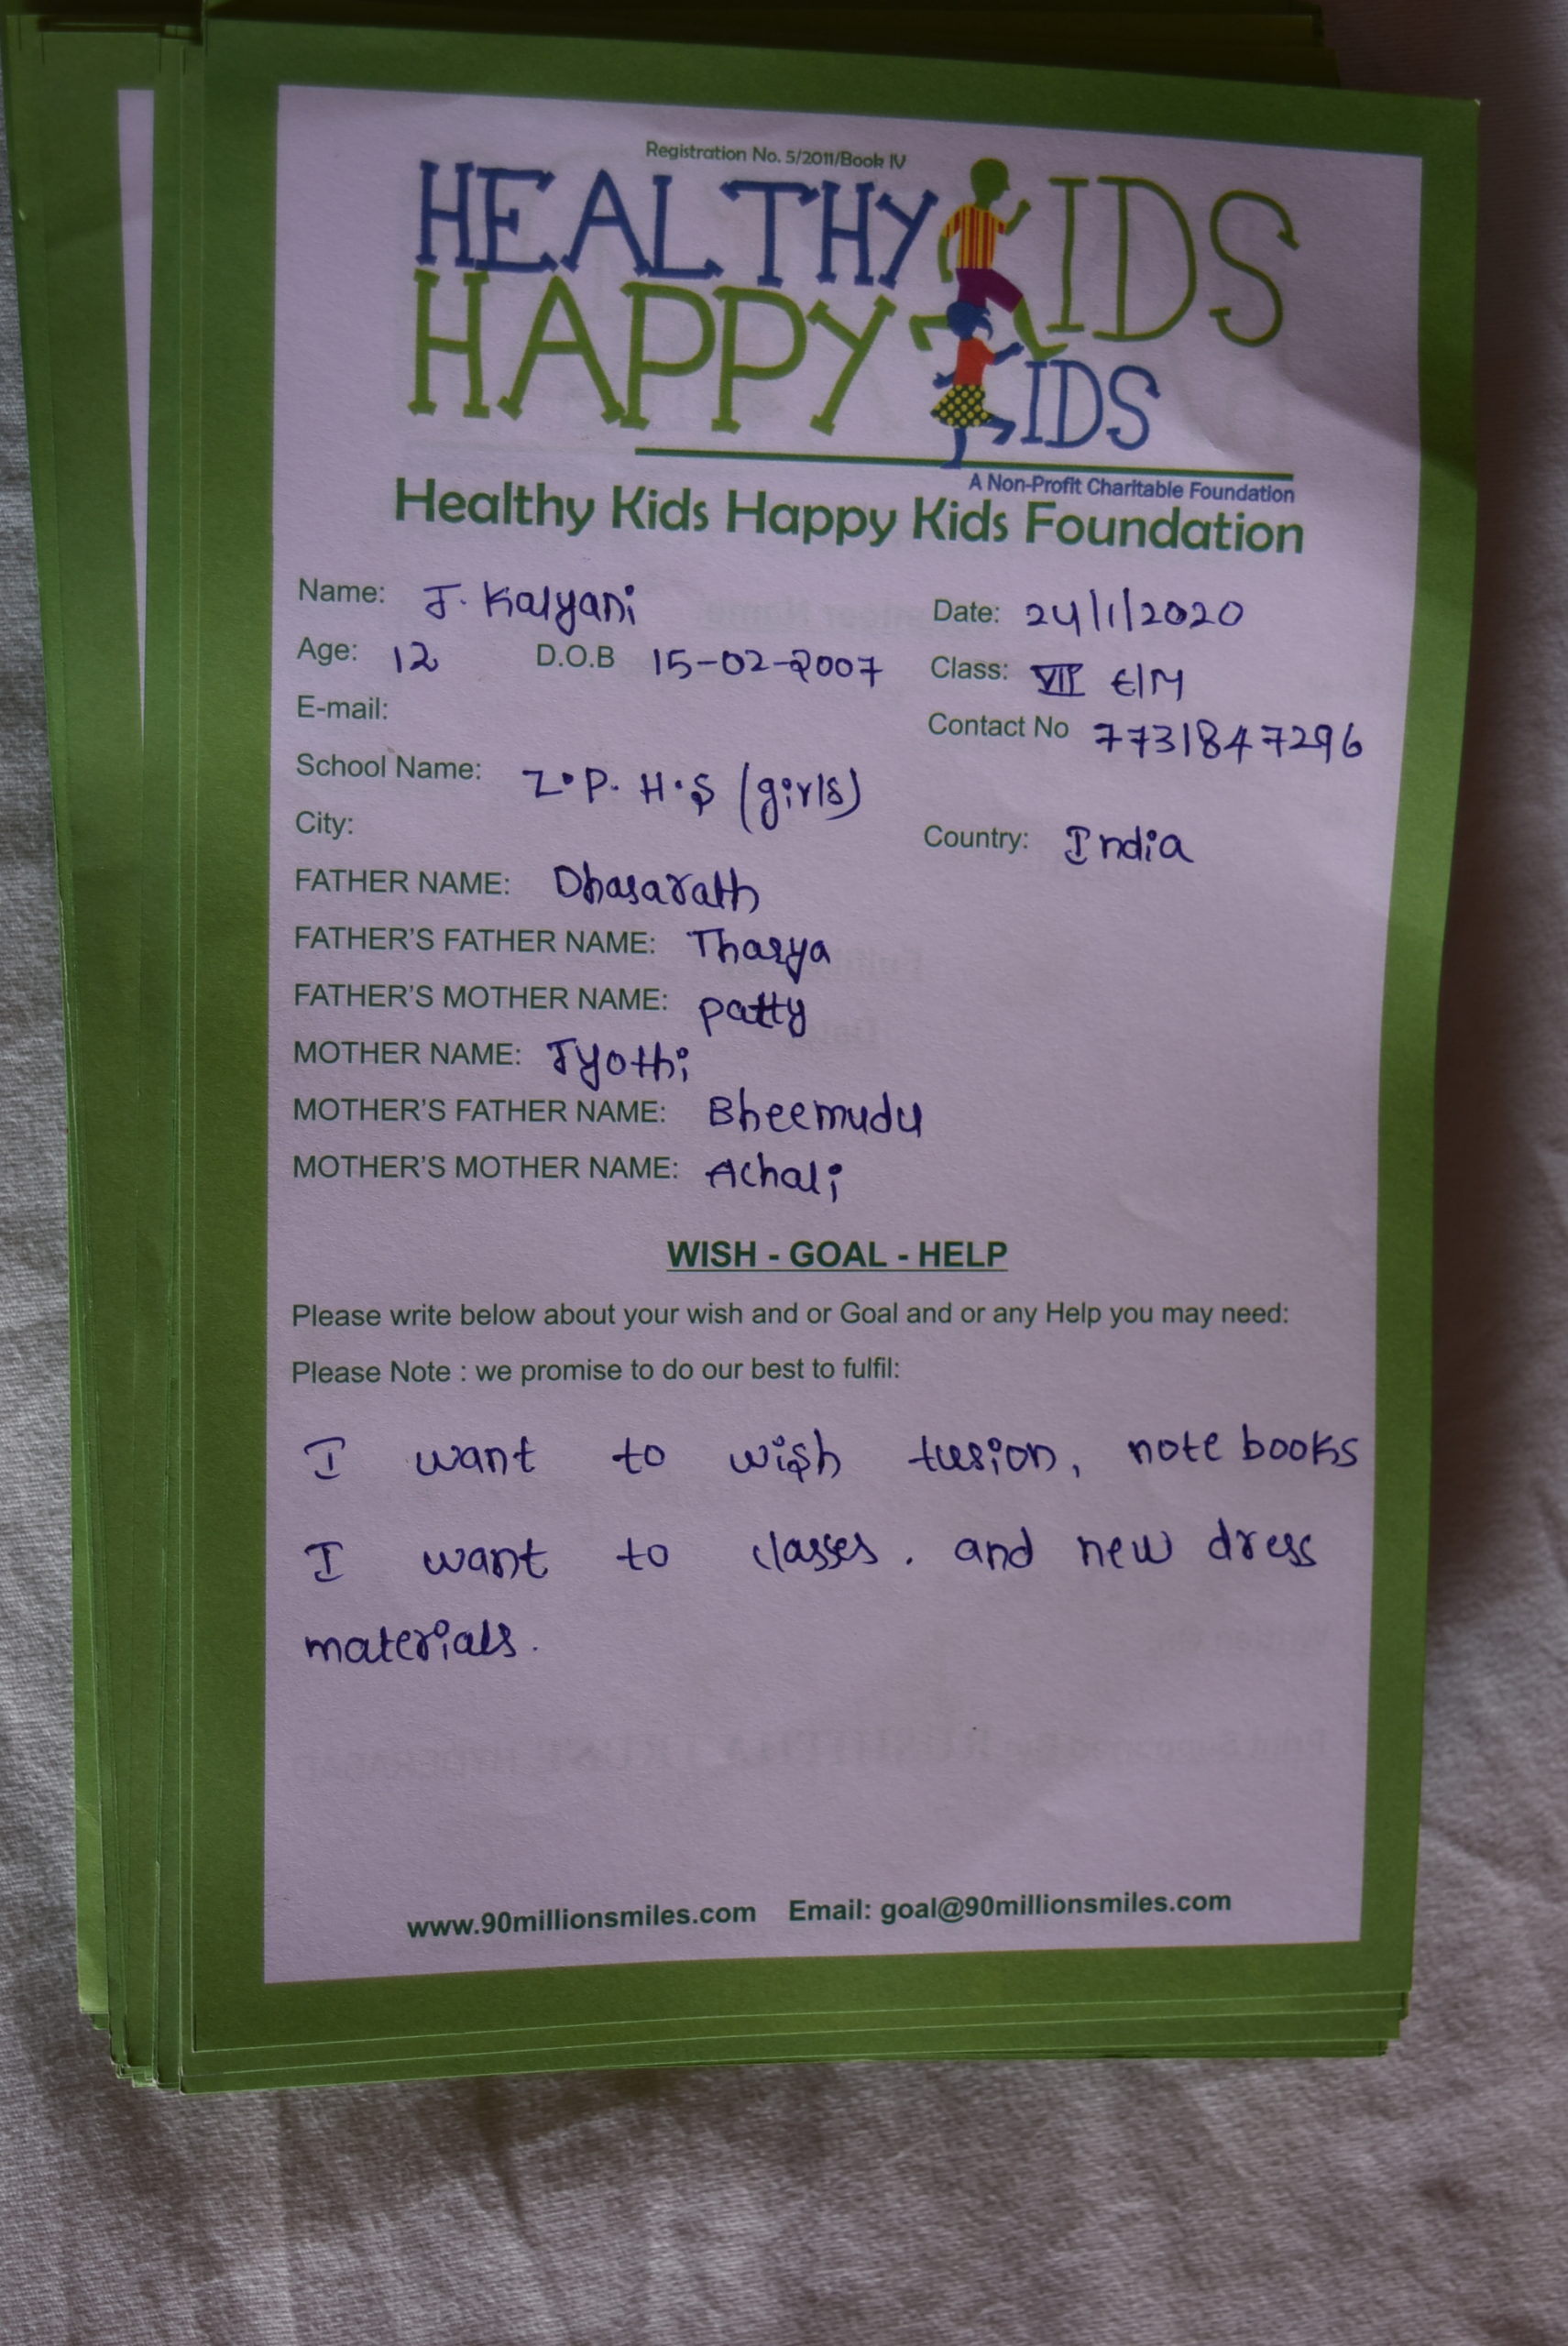 Registration No. 5/2011/Book IV
HEALTHY KIDS
HAPPY KIDS
A Non-Profit Charitable Foundation
Healthy Kids Happy Kids Foundation
Name: J. Kalyani Date: 24/1/2020
Age: 12 D.O.B 15-02-2007 Class: VII E/M
E-mail: Contact No 7731847296
School Name: Z.P. H.S (girls)
City: Country: India
FATHER NAME: Dhasarath
FATHER'S FATHER NAME: Tharya
FATHER'S MOTHER NAME: patty
MOTHER NAME: Jyothi
MOTHER'S FATHER NAME: Bheemudu
MOTHER'S MOTHER NAME: Achali
WISH - GOAL - HELP
Please write below about your wish and or Goal and or any Help you may need:
Please Note : we promise to do our best to fulfil:
I want to wish tusion, note books
I want to classes. and new dress
materials.
www.90millionsmiles.com Email: goal@90millionsmiles.com